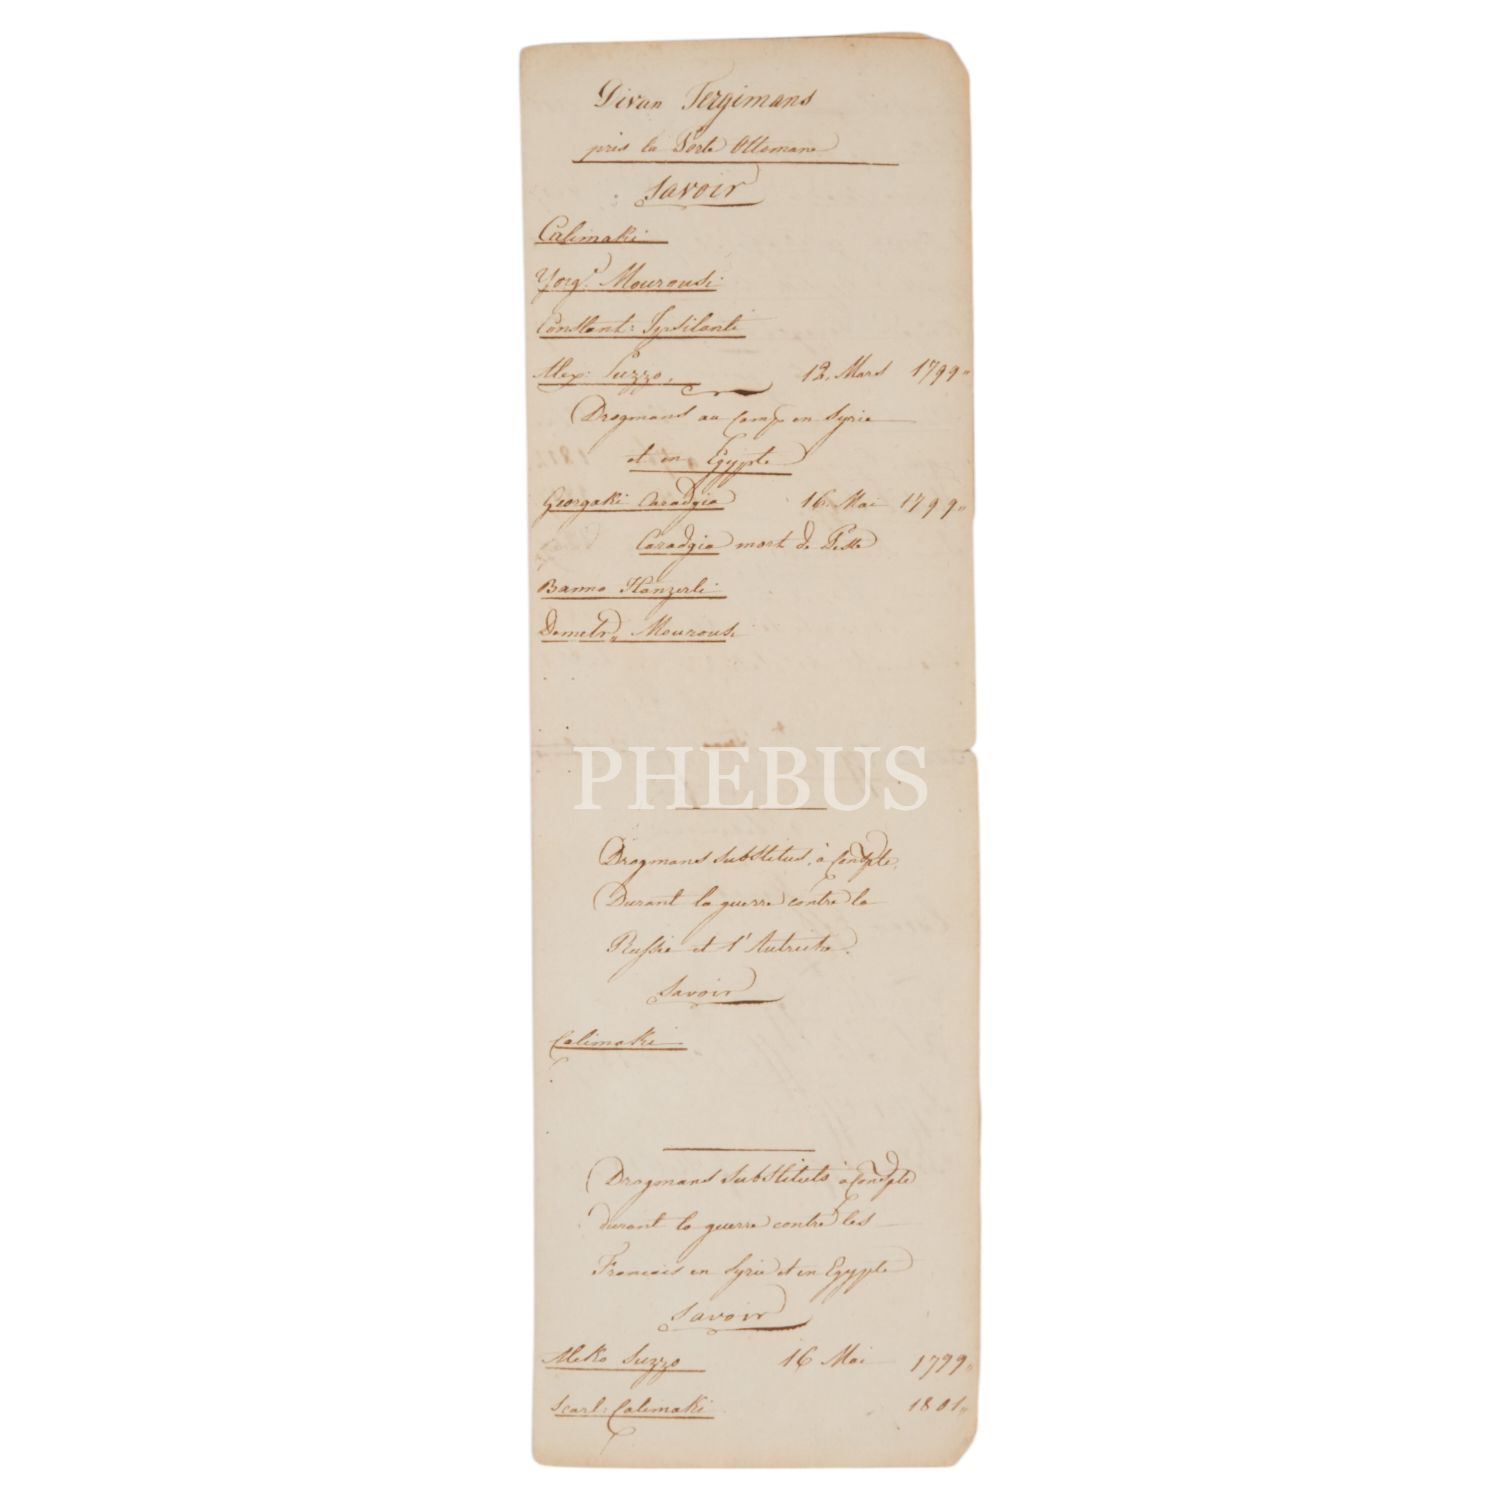 Divan Tergimans
près la Porte Ottomane
Savoir
Calimaki
Yorg. Mourousi
Constant: Ypsilanti
Alex: Suzzo, 12. Mars 1799"
Drogmans au Camp en Syrie
et en Egypte
Georgaki Caradgia 16. Mai 1799"
Caradgia mort de Peste
Hanzerli
Demetr" Mourousi
PHEBUS
Drogmans substitus, à Const.ple
Durant la guerre contre la
Russie et l'Autriche.
Savoir
Calimaki
Drogmans substituts à Const.ple
durant la guerre contre les
Francais en Syrie et en Egypte
Savoir
Aleko Suzzo 16 Mai 1799"
Scarl: Calimaki 1801"